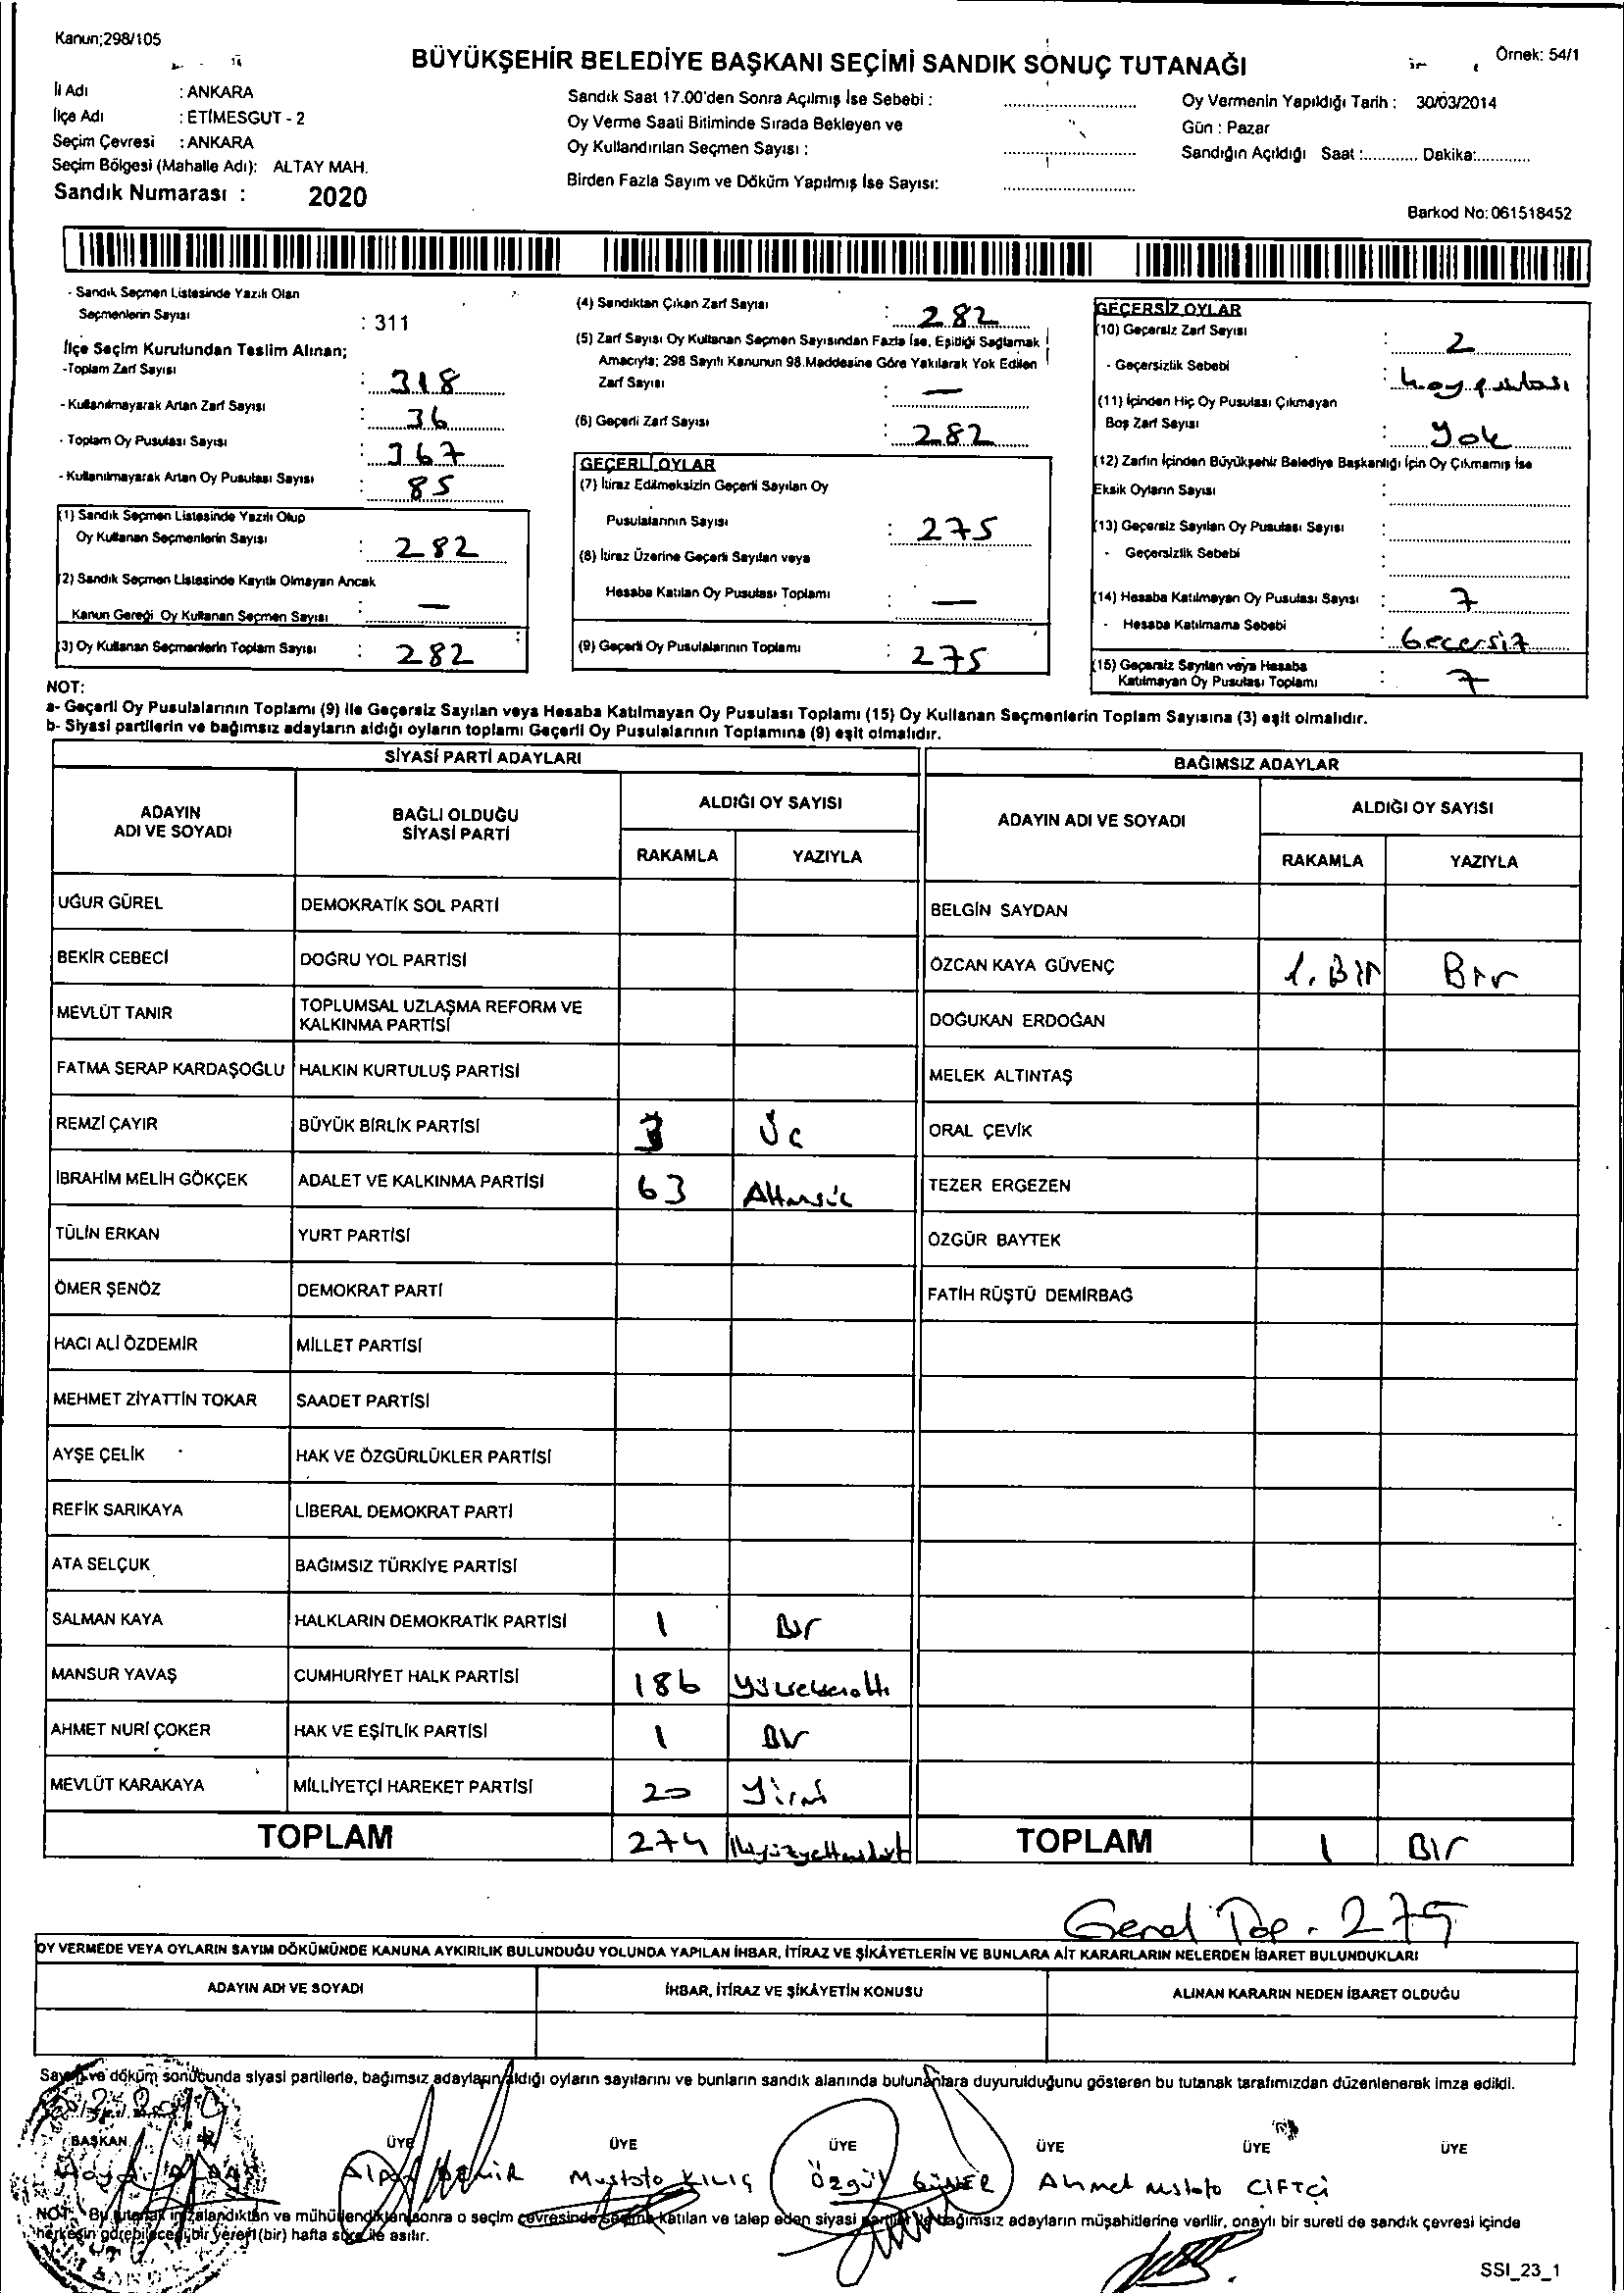 Kanun;298/105
Örnek: 54/1
BÜYÜKŞEHİR BELEDİYE BAŞKANI SEÇİMİ SANDIK SONUÇ TUTANAĞI
İli Adı : ANKARA
İlçe Adı : ETİMESGUT - 2
Seçim Çevresi : ANKARA
Seçim Bölgesi (Mahalle Adı): ALTAY MAH.
Sandık Numarası : 2020
Sandık Saat 17.00'den Sonra Açılmış İse Sebebi :
Oy Verme Saati Bitiminde Sırada Bekleyen ve
Oy Kullandırılan Seçmen Sayısı :
Birden Fazla Sayım ve Döküm Yapılmış İse Sayısı:
Oy Vermenin Yapıldığı Tarih : 30/03/2014
Gün : Pazar
Sandığın Açıldığı Saat :............ Dakika:............
Barkod No: 061518452
- Sandık Seçmen Listesinde Yazılı Olan
Seçmenlerin Sayısı : 311
İlçe Seçim Kurulundan Teslim Alınan;
-Toplam Zarf Sayısı : 318
- Kullanılmayarak Artan Zarf Sayısı : 36
- Toplam Oy Pusulası Sayısı : 367
- Kullanılmayarak Artan Oy Pusulası Sayısı : 85
(1) Sandık Seçmen Listesinde Yazılı Olup
Oy Kullanan Seçmenlerin Sayısı : 282
(2) Sandık Seçmen Listesinde Kayıtlı Olmayan Ancak
Kanun Gereği Oy Kullanan Seçmen Sayısı : —
(3) Oy Kullanan Seçmenlerin Toplam Sayısı : 282
(4) Sandıktan Çıkan Zarf Sayısı : 282
(5) Zarf Sayısı Oy Kullanan Seçmen Sayısından Fazla İse, Eşitliği Sağlamak
Amacıyla; 298 Sayılı Kanunun 98.Maddesine Göre Yakılarak Yok Edilen
Zarf Sayısı : —
(6) Geçerli Zarf Sayısı : 282
GEÇERLİ OYLAR
(7) İtiraz Edilmeksizin Geçerli Sayılan Oy
Pusulalarının Sayısı : 275
(8) İtiraz Üzerine Geçerli Sayılan veya
Hesaba Katılan Oy Pusulası Toplamı : —
(9) Geçerli Oy Pusulalarının Toplamı : 275
GEÇERSİZ OYLAR
(10) Geçersiz Zarf Sayısı : 2
- Geçersizlik Sebebi :
(11) İçinden Hiç Oy Pusulası Çıkmayan
Boş Zarf Sayısı : Yok
(12) Zarfın İçinden Büyükşehir Belediye Başkanlığı İçin Oy Çıkmamış İse
Eksik Oyların Sayısı :
(13) Geçersiz Sayılan Oy Pusulası Sayısı :
- Geçersizlik Sebebi
(14) Hesaba Katılmayan Oy Pusulası Sayısı : 7
- Hesaba Katılmama Sebebi : Gecersiz
(15) Geçersiz Sayılan veya Hesaba
Katılmayan Oy Pusulası Toplamı : 7
NOT:
a- Geçerli Oy Pusulalarının Toplamı (9) ile Geçersiz Sayılan veya Hesaba Katılmayan Oy Pusulası Toplamı (15) Oy Kullanan Seçmenlerin Toplam Sayısına (3) eşit olmalıdır.
b- Siyasi partilerin ve bağımsız adayların aldığı oyların toplamı Geçerli Oy Pusulalarının Toplamına (9) eşit olmalıdır.
SİYASİ PARTİ ADAYLARI
ADAYIN ADI VE SOYADI
BAĞLI OLDUĞU SİYASİ PARTİ
ALDIĞI OY SAYISI
RAKAMLA YAZIYLA
UĞUR GÜREL DEMOKRATİK SOL PARTİ
BEKİR CEBECİ DOĞRU YOL PARTİSİ
MEVLÜT TANIR TOPLUMSAL UZLAŞMA REFORM VE KALKINMA PARTİSİ
FATMA SERAP KARDAŞOĞLU HALKIN KURTULUŞ PARTİSİ
REMZİ ÇAYIR BÜYÜK BİRLİK PARTİSİ 3 Üc
İBRAHİM MELİH GÖKÇEK ADALET VE KALKINMA PARTİSİ 63
TÜLİN ERKAN YURT PARTİSİ
ÖMER ŞENÖZ DEMOKRAT PARTİ
HACI ALİ ÖZDEMİR MİLLET PARTİSİ
MEHMET ZİYATTİN TOKAR SAADET PARTİSİ
AYŞE ÇELİK HAK VE ÖZGÜRLÜKLER PARTİSİ
REFİK SARIKAYA LİBERAL DEMOKRAT PARTİ
ATA SELÇUK BAĞIMSIZ TÜRKİYE PARTİSİ
SALMAN KAYA HALKLARIN DEMOKRATİK PARTİSİ 1 Bir
MANSUR YAVAŞ CUMHURİYET HALK PARTİSİ 186
AHMET NURİ ÇOKER HAK VE EŞİTLİK PARTİSİ 1 Bir
MEVLÜT KARAKAYA MİLLİYETÇİ HAREKET PARTİSİ 20 Yirmi
TOPLAM 274
BAĞIMSIZ ADAYLAR
ADAYIN ADI VE SOYADI
ALDIĞI OY SAYISI
RAKAMLA YAZIYLA
BELGİN SAYDAN
ÖZCAN KAYA GÜVENÇ 1. BİR Bir
DOĞUKAN ERDOĞAN
MELEK ALTINTAŞ
ORAL ÇEVİK
TEZER ERGEZEN
ÖZGÜR BAYTEK
FATİH RÜŞTÜ DEMİRBAĞ
TOPLAM 1 Bir
Genel Top. 275
OY VERMEDE VEYA OYLARIN SAYIM DÖKÜMÜNDE KANUNA AYKIRILIK BULUNDUĞU YOLUNDA YAPILAN İHBAR, İTİRAZ VE ŞİKÂYETLERİN VE BUNLARA AİT KARARLARIN NELERDEN İBARET BULUNDUKLARI
ADAYIN ADI VE SOYADI
İHBAR, İTİRAZ VE ŞİKÂYETİN KONUSU
ALINAN KARARIN NEDEN İBARET OLDUĞU
Sayım ve döküm sonucunda siyasi partilerle, bağımsız adayların aldığı oyların sayılarını ve bunların sandık alanında bulunanlara duyurulduğunu gösteren bu tutanak tarafımızdan düzenlenerek imza edildi.
BAŞKAN ÜYE ÜYE ÜYE ÜYE ÜYE ÜYE
Mustafa KILIÇ Özgül GÜNER Ahmet Mustafa CİFTÇİ
NOT: Bu tutanak imzalandıktan ve mühürlendikten sonra o seçim çevresinde seçime katılan ve talep eden siyasi partiler ve bağımsız adayların müşahitlerine verilir, onaylı bir sureti de sandık çevresi içinde
herkesin görebileceği bir yere 1 (bir) hafta süre ile asılır.
SSI_23_1